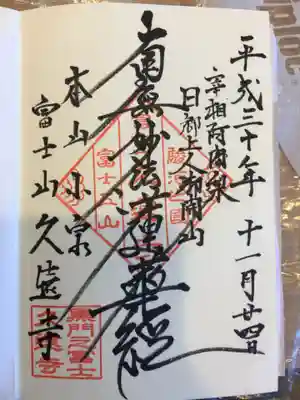 平成三十年 十一月廿四日
宰相阿闍梨
日郷上人御開山
南無妙法蓮華経
本山小泉
富士山久遠寺
富士山